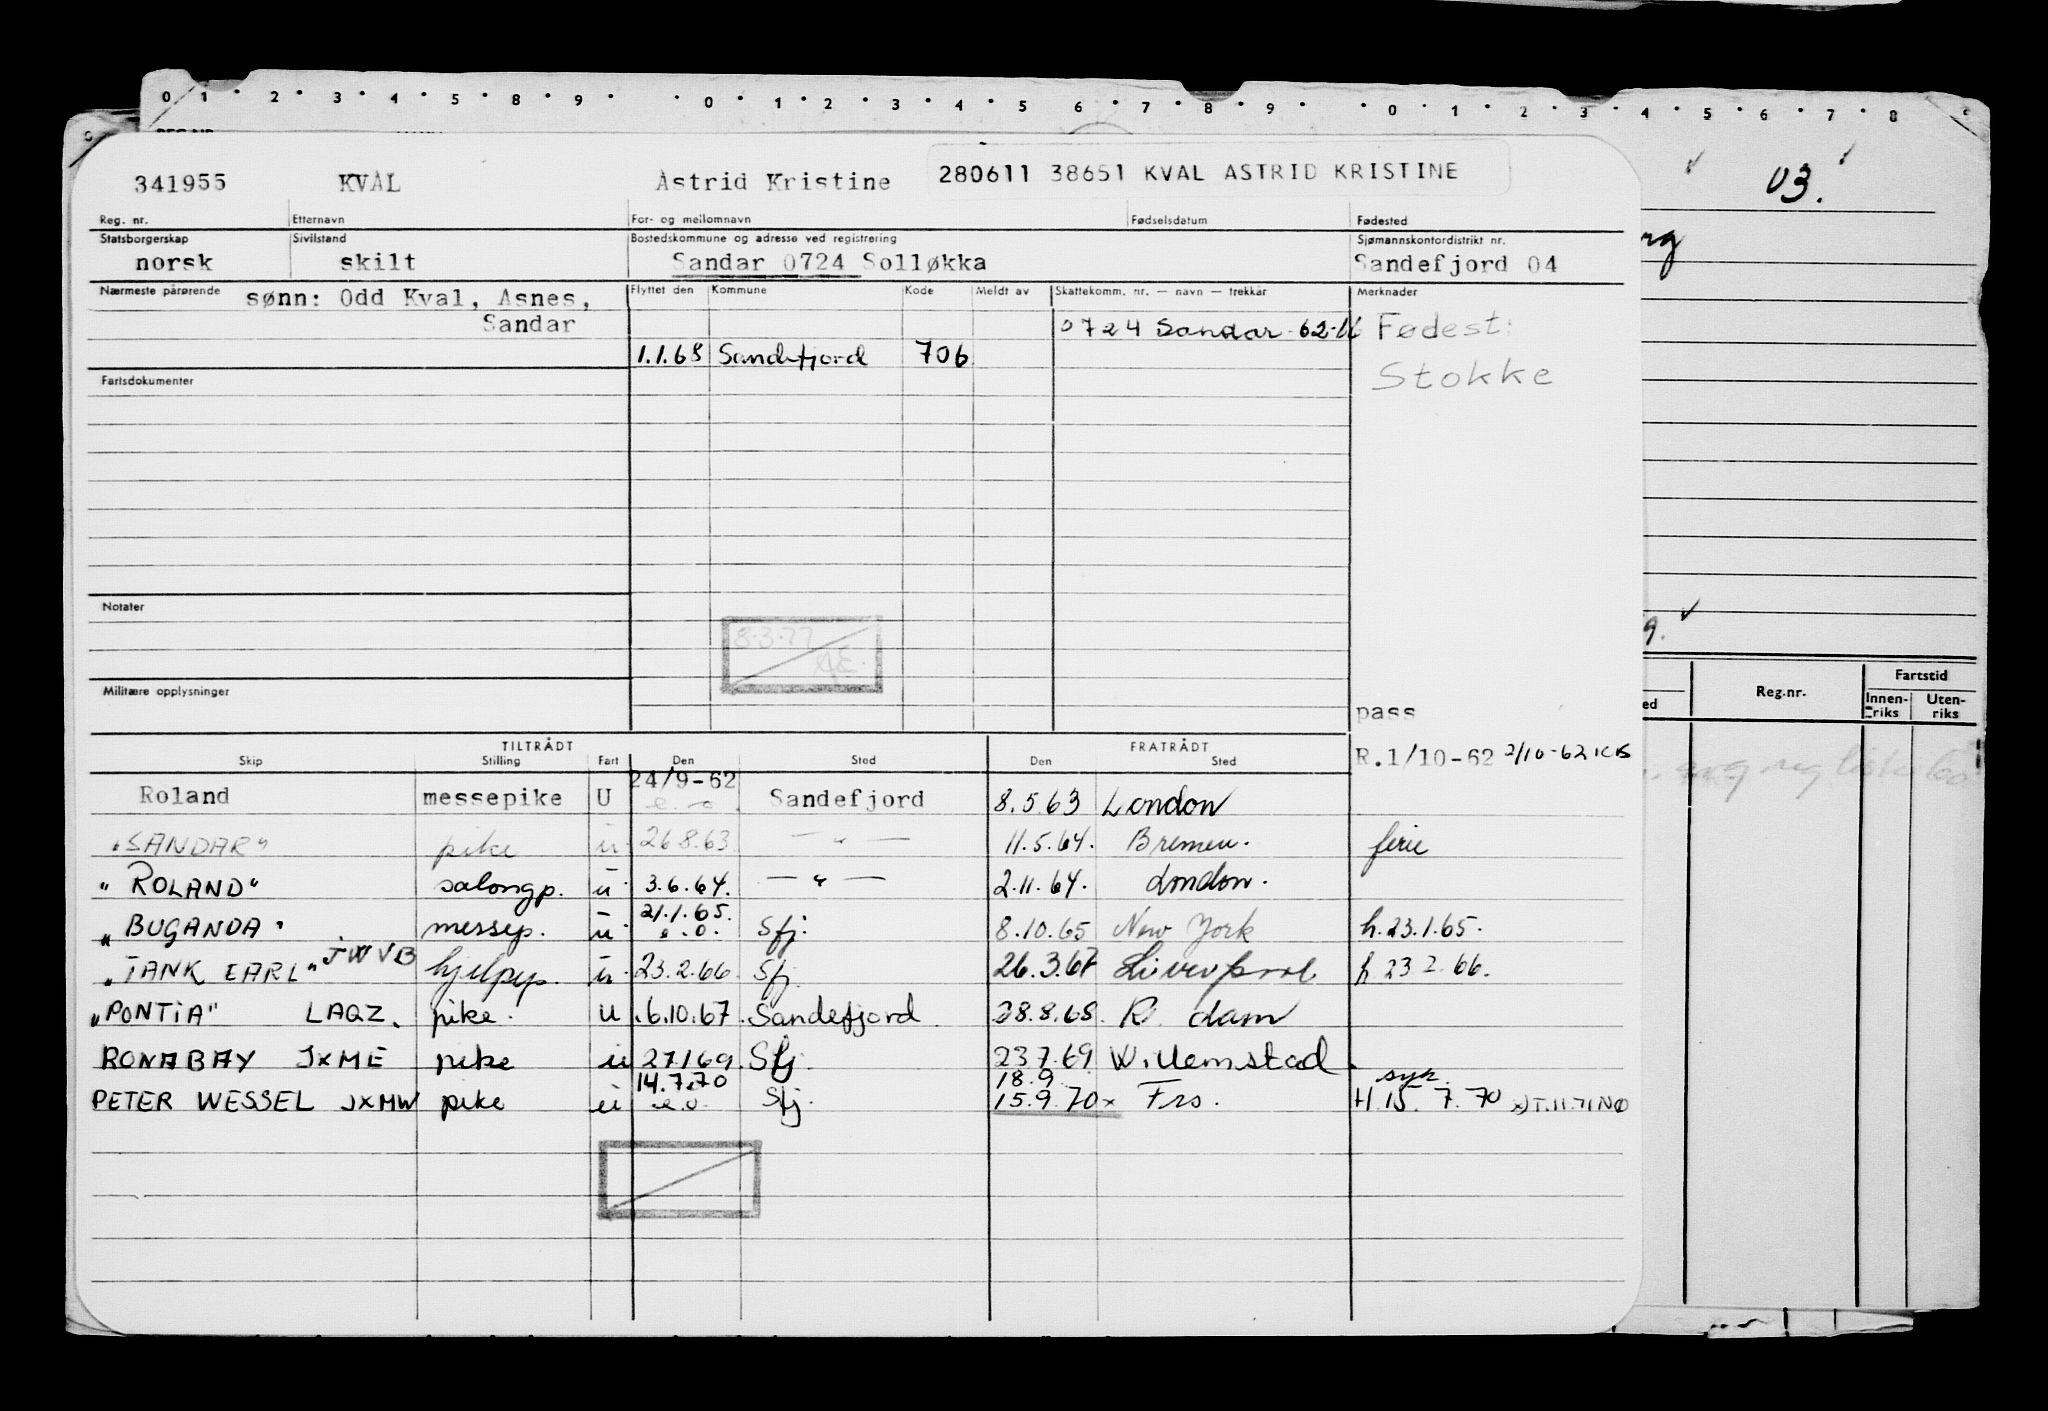 0 1 2 3 4 5 8 9 0 1 2 3 4 5 6 7 8 9 0 1 2 3 4 5 6 7 8
341955 KVAL Astrid Kristine 280611 38651 KVAL ASTRID KRISTINE 03.
Reg. nr. Etternavn For- og mellomnavn Fødselsdatum Fødested
Statsborgerskap Sivilstand Bostedskommune og adresse ved registrering Sjømannskontordistrikt nr.
norsk skilt Sandar 0724 Solløkka Sandefjord 04
Nærmeste pårørende sønn: Odd Kval, Asnes, Flyttet den Kommune Kode Meldt av Skattekomm. nr. — navn — trekkår Merknader
Sandar 0724 Sandar Fødest:
1.1.68 Sandefjord 706 Stokke
Fartsdokumenter
Notater
8.3.77
Militære opplysninger
pass
Reg.nr. Fartstid
Innenriks Utenriks
TILTRÅDT FRATRÅDT R.1/10-62 2/10-62
Skip Stilling Fart Den Sted Den Sted
24/9-62
Roland messepike U e.o. Sandefjord 8.5.63 London
"SANDAR" pike u 26.8.63 — " — 11.5.64. Bremen. ferie
"ROLAND" salongp. u 3.6.64. — " — 2.11.64. London.
21.1.65.
"BUGANDA" messep. u e.o. Sfj. 8.10.65 New York h.23.1.65.
"TANK EARL" JWVB hjelpep. u 23.2.66. Sfj. 26.3.67 Liverpool h 23 2.66.
"PONTIA" LAQZ. pike. U .6.10.67. Sandefjord 28.8.68. R.dam
RONABAY JXME pike u 27.1.69. Sfj. 23.7.69 Willemstad.
14.7.70 18.9 syk.
PETER WESSEL JXMW pike u e.o. Sfj. 15.9.70x Frs. H.15.7.70